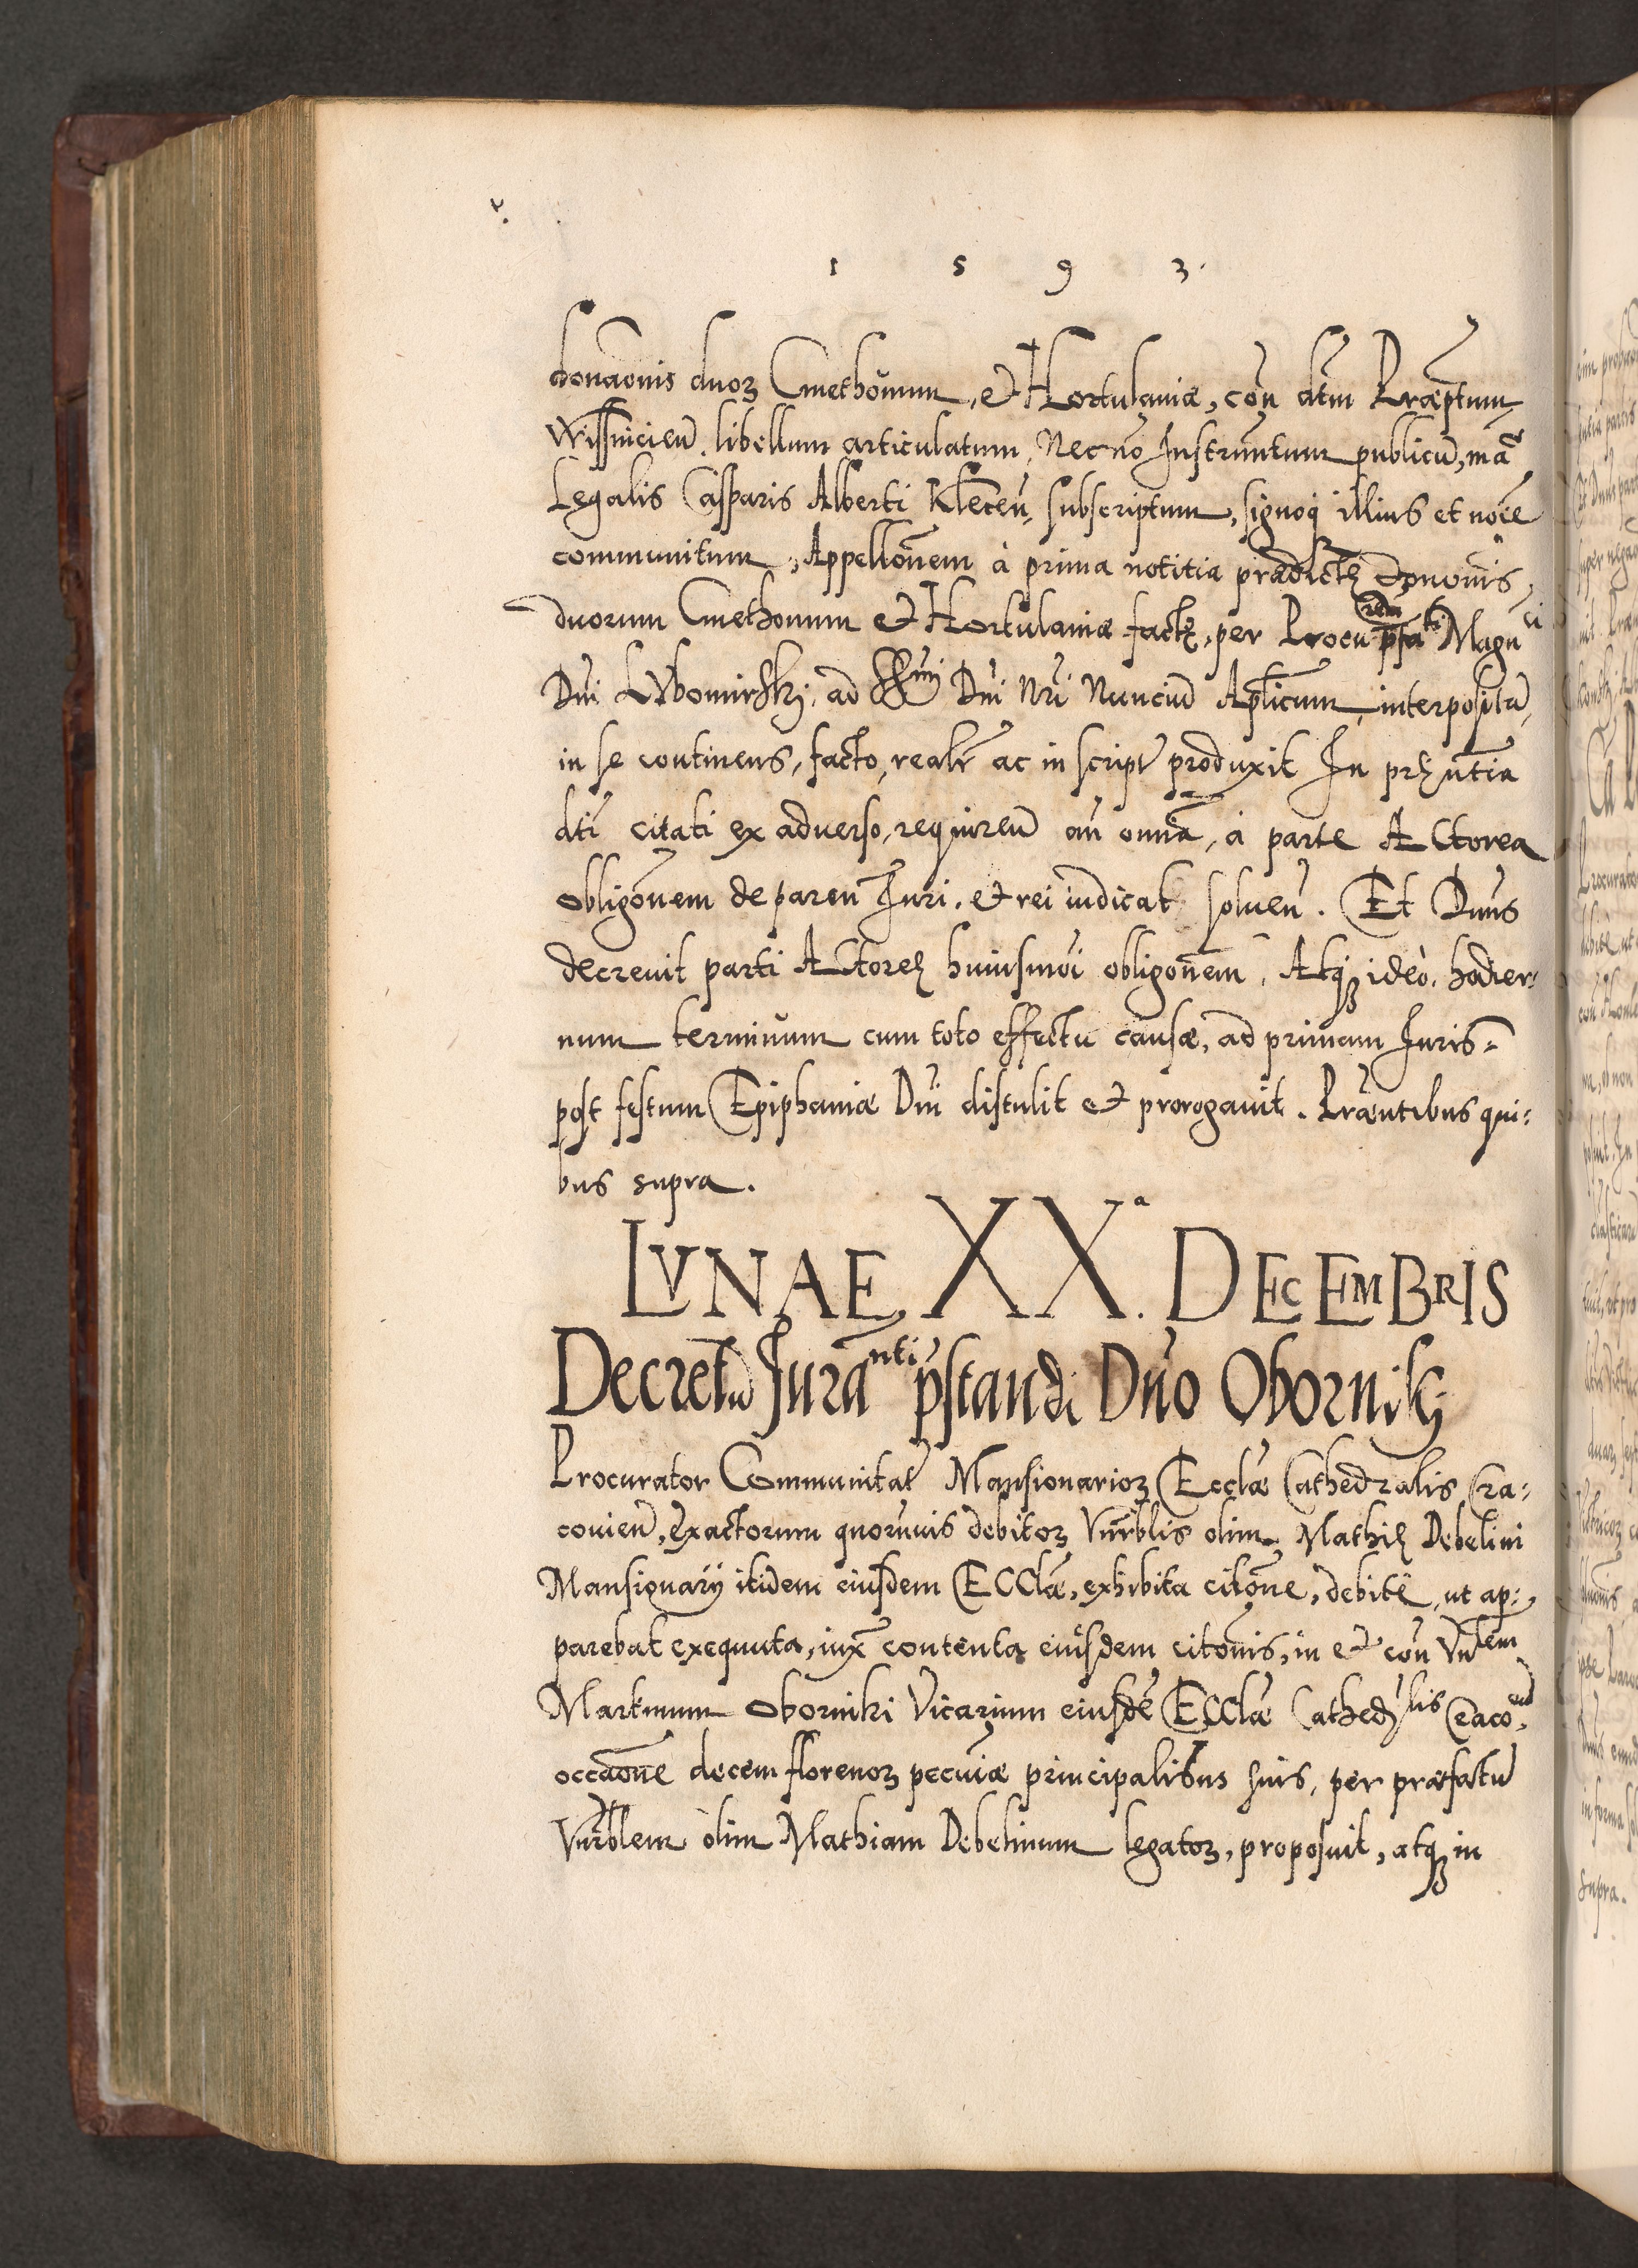 1 5 9 3.
donãonis duoꝝ Cmethonum, et Hortulaniæ, coñ dtm Præptum
Wissnicieñ. libellum articulatum, Necnõ Instrumntum publicũ, mã
Legalis Casparis Alberti Kleceñ, subscriptum, signoq illius et noĩe
communitum, Appellõnem à prima notitia prædictę Donõnis,
duorum Cmethonum et Hortulaniæ factę, per Procurem pfati Magnci
Dni LVbomirskj, ad Dni Nri Nunciũ Aplicum, interpositã,
in se continens, facto, realr ac in script produxit In pręntia
dti citati ex aduerso, requireñ añ omnã, à parte ACtorea
obligõnem de pareñ Iuri, et rei iudicat solueñ. Et Dnus
decreuit parti ACtoreę huiusmõi obligõnem, Atqꝫ ideò, hodier=
num terminum cum toto effectu causæ, ad primam Iuris=
post festum Epiphaniæ Dni distulit et prorogauit. Præntibus qui=
bus supra.
LVNAE XXª. DECEMBRIS
Decretũ Juramnti pstandi Dño Obornikj
Procurator Communitat Mansionarioꝝ Ecclæ Cathedralis Cra=
couieñ, exactorum quoruṁuis debitoꝝ Vnrblis olim Mathię Debelini
Mansionarij itidem eiusdem ECClæ, exhibita citõne, debitè, ut ap=
parebat exequuta, iuxᵃ contenta eiusdem citõnis, in et coñ Vnlem
Martinum Oborniki Vicarium eiusdẽ ECClæ Cathedlis Cracoeñ,
occãone decem florenoꝝ pecuniæ principalibus suis, per præfatũ
Vnrblem olim Mathiam Debelinum legatoꝝ, proposuit, atqꝫ in